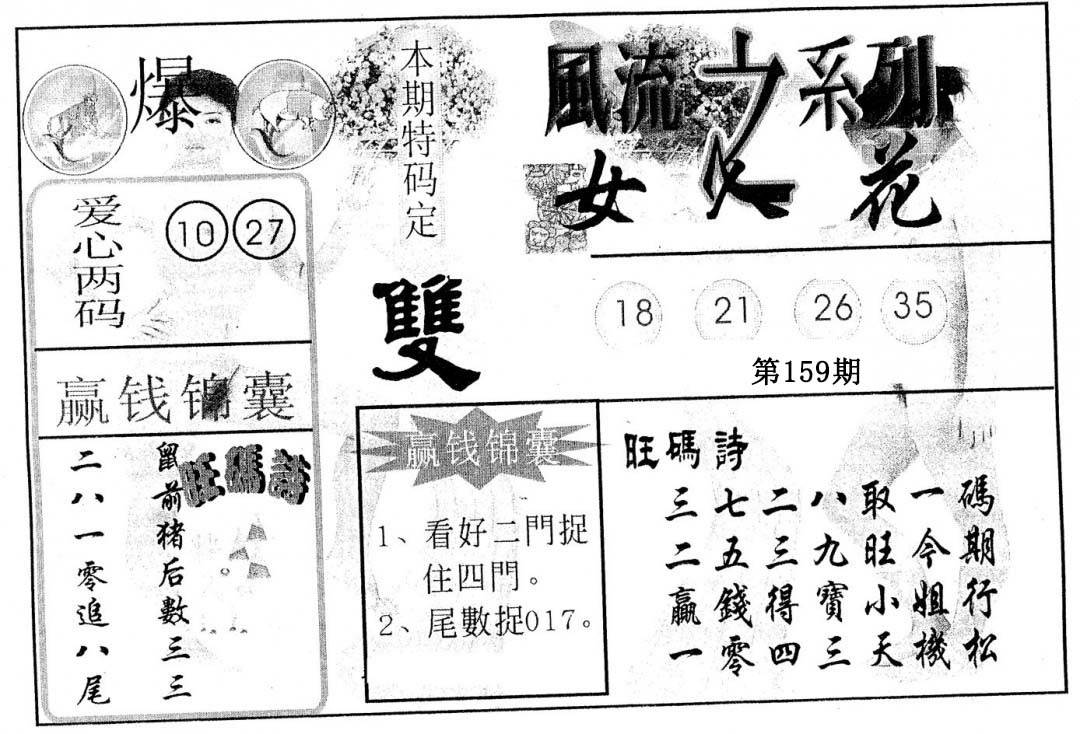 爆
爱心两码
10 27
赢钱锦囊
旺碼詩
鼠前猪后數三三
二八一零追八尾
本期特码定
雙
風流女人花之系列
18 21 26 35
第159期
赢钱锦囊
1、看好二門捉
住四門。
2、尾數捉017。
旺碼詩
三七二八取一碼
二五三九旺今期
贏錢得寶小姐行
一零四三天機松